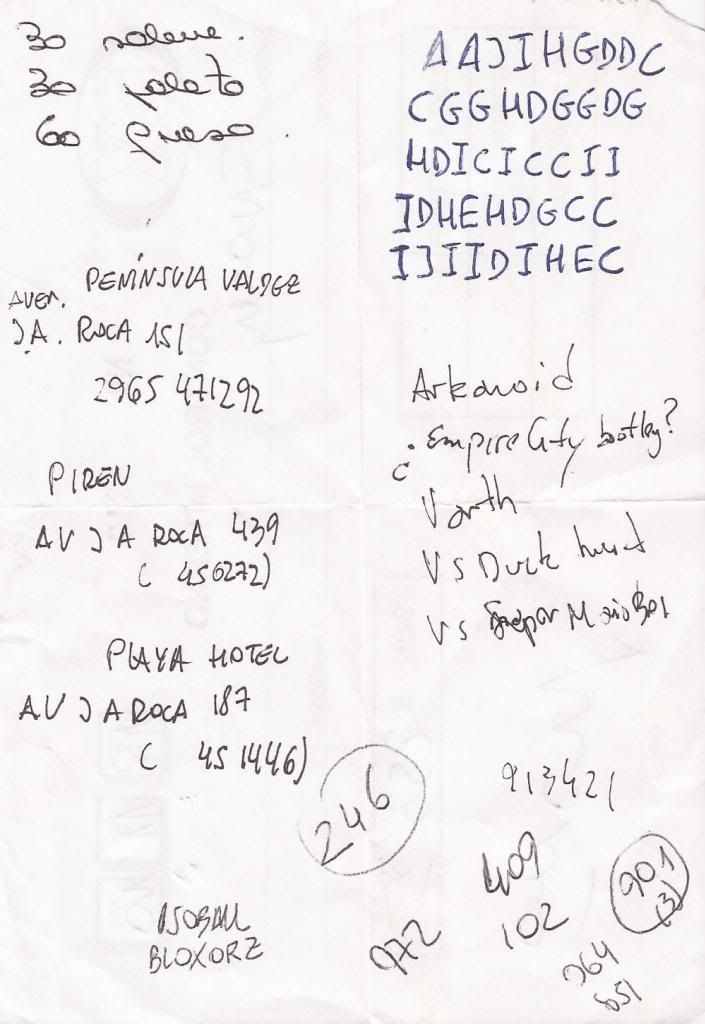 30 salame.
30 paleta
60 queso.
AAJIHGDDC
CGGHDGGDG
HDICICCII
IDHEHDGCC
IJIIDIHEC
PENÍNSULA VALDEZ
AVEN.
JA. ROCA 151
2965 471292
PIREN
AV J A ROCA 439
( 456272)
PLAYA HOTEL
AV J A ROCA 187
( 451446)
Arkanoid
Empire City bootleg?
Varth
Vs Duck hunt
Vs Super Mario Bros
246
913421
409
102
901
(3)
972
264
651
ISOBALL
BLOXORZ